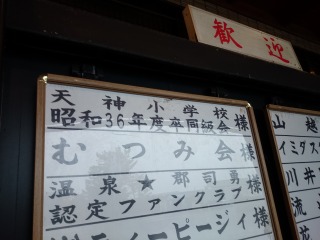 歓迎
天神小学校
昭和36年度卒同級会 様
むつみ会 様
温泉★郡司勇
認定ファンクラブ 様
ティーピージィ 様
山越
イミダス
川井
流
花